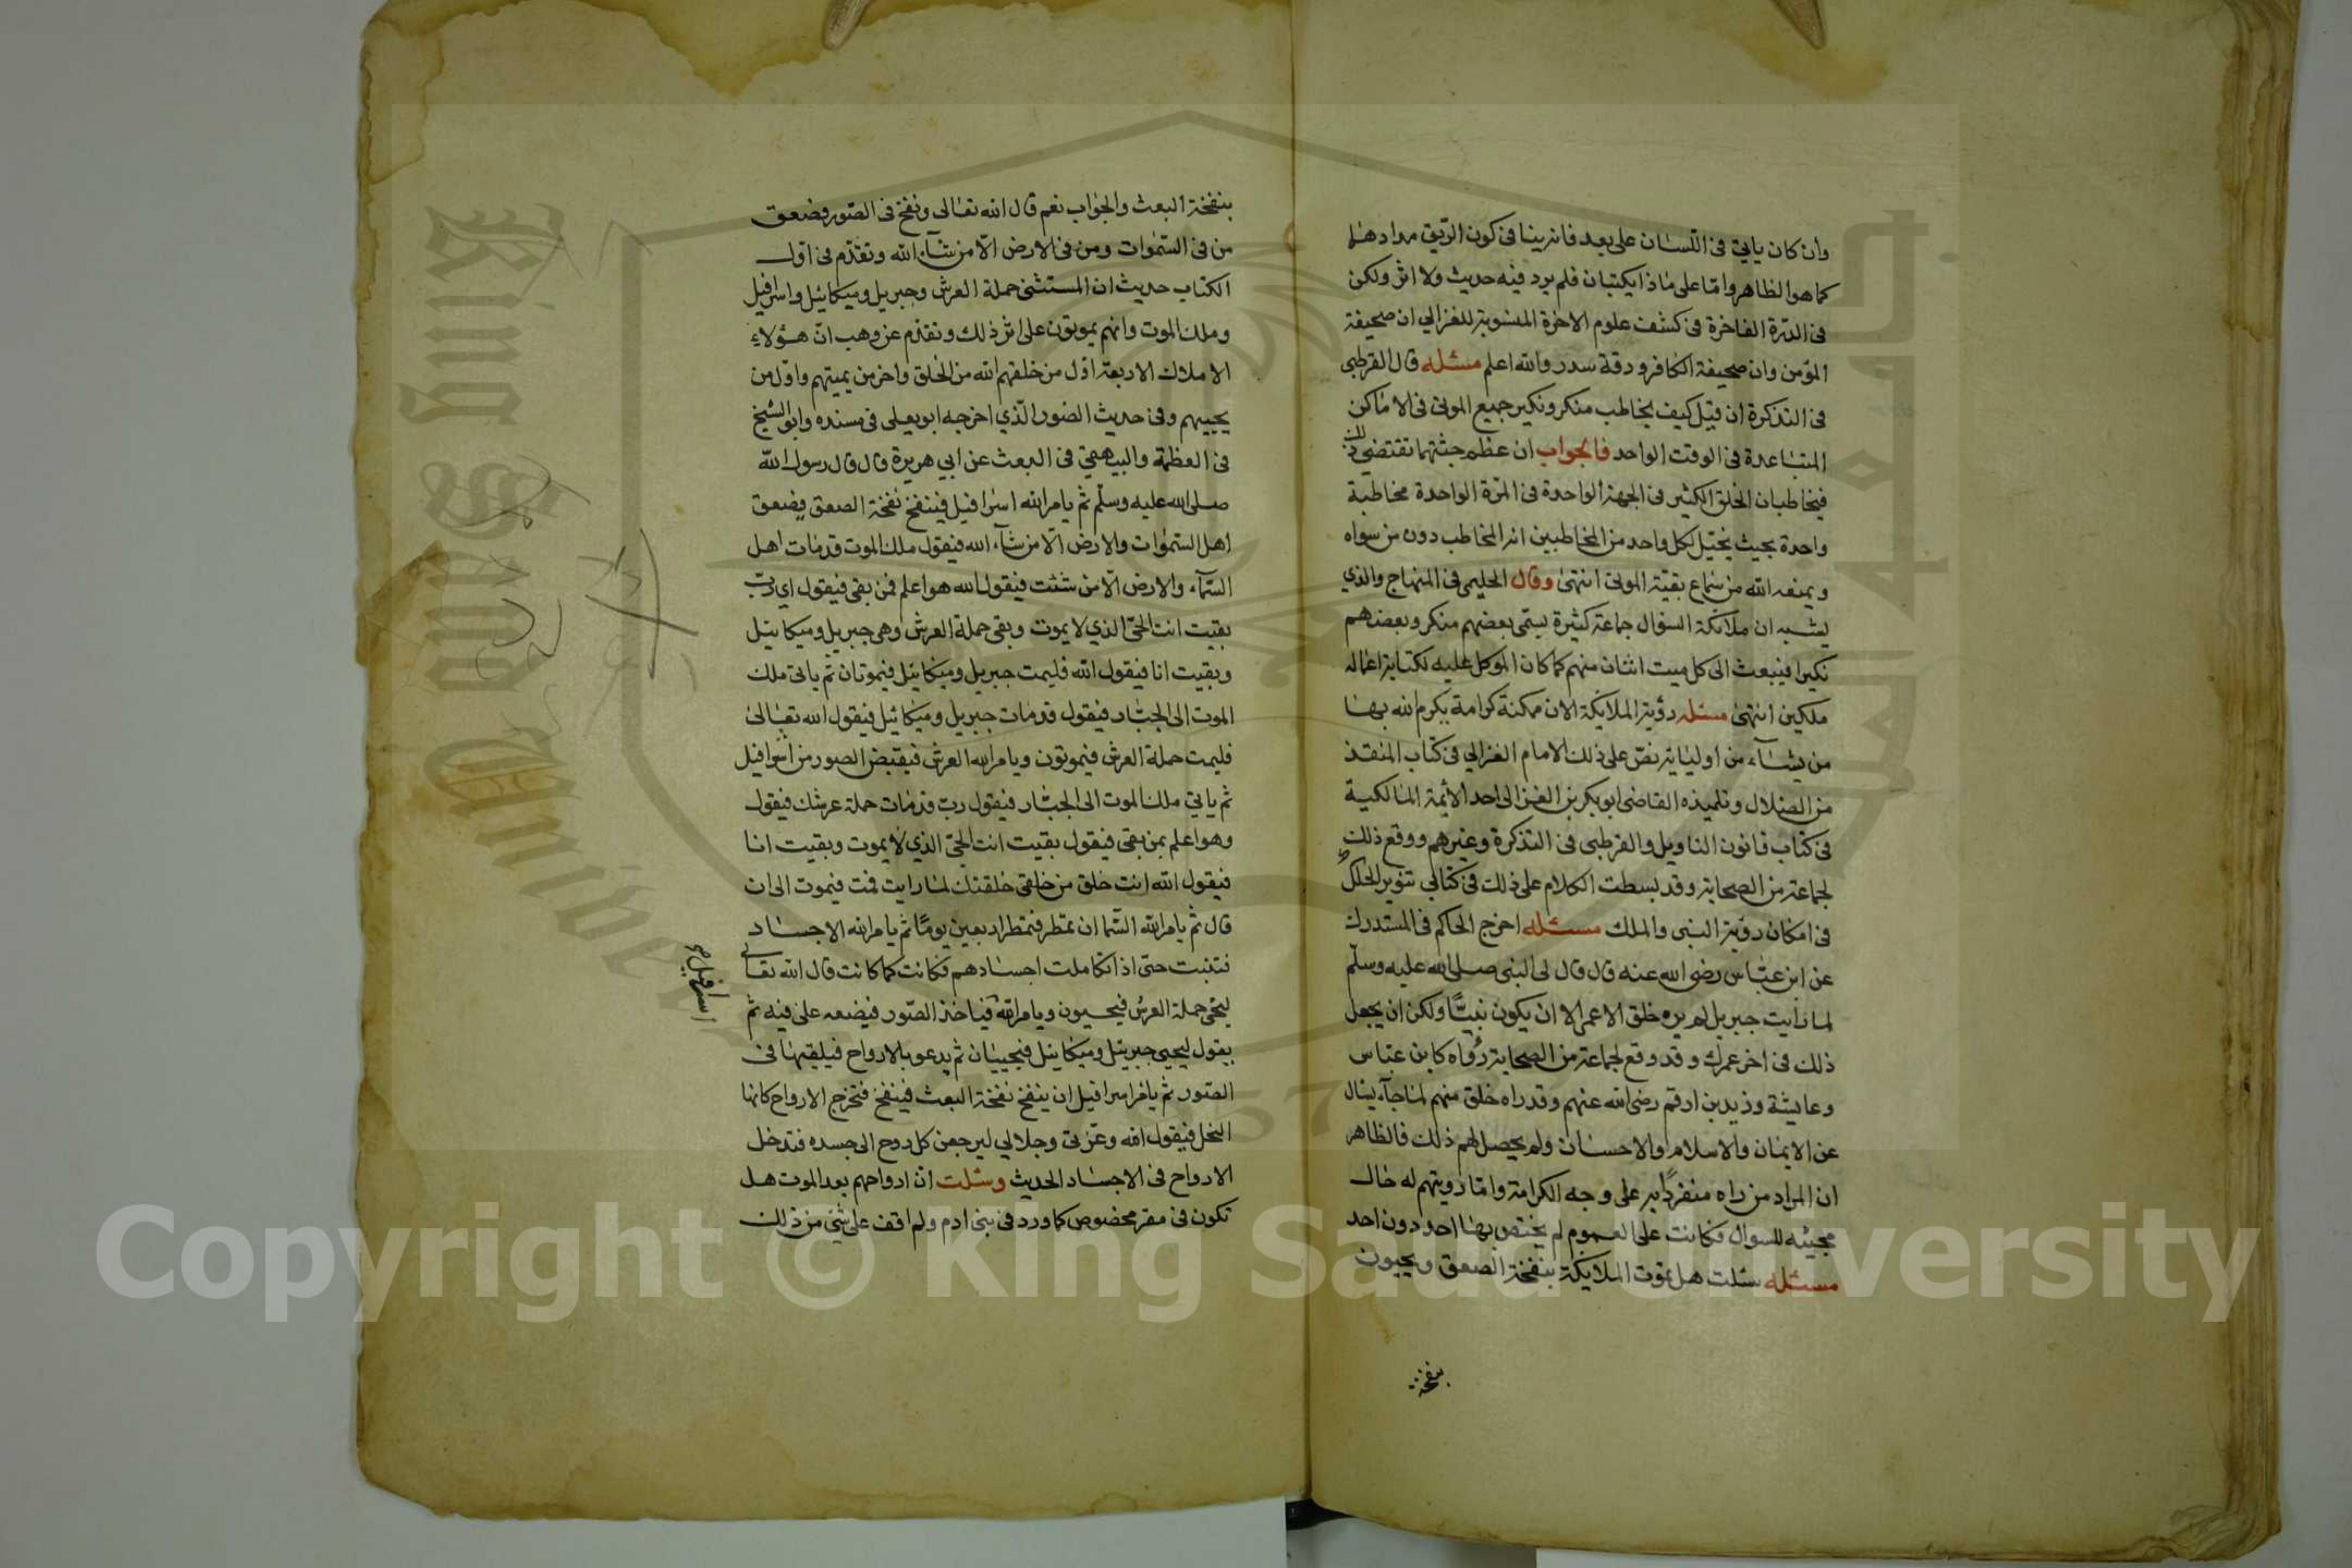 وان كان ياتي في اللسان على بعد فانه بينا في كون الريق مدادهما
كما هو الظاهر واما على ماذا يكتبان فلم يرد فيه حديث ولا اثر ولكن
في الدرة الفاخرة في كشف علوم الاخرة المنسوبة للغزالي ان صحيفة
المؤمن وان صحيفة الكافر ورقة سدر والله اعلم مسئله قال القرطبي
في التذكرة ان قيل كيف يخاطب منكر ونكير جميع الموتى في الاماكن
المتباعدة في الوقت الواحد فالجواب ان عظم جثتهما تقتضي ذلك
فيخاطبان الخلق الكثير في الجهة الواحدة في المرة الواحدة مخاطبة
واحدة بحيث يخيل لكل واحد من المخاطبين انه المخاطب دون من سواه
ويمنعه الله من سماع بقية الموتى انتهى وقال الحليمي في المنهاج والذي
يشبه ان ملائكة السؤال جماعة كثيرة يسمى بعضهم منكر وبعضهم
نكيرا فيبعث الى كل ميت اثنان منهم كما كان الموكل عليه لكتابة اعماله
ملكين انتهى مسئله رؤية الملائكة الان ممكنة كرامة يكرم الله بها
من يشاء من اوليايه نص على ذلك الامام الغزالي في كتاب المنقذ
من الضلال وتلميذه القاضي ابو بكر بن العربي احد الأئمة المالكية
في كتاب قانون التاويل والقرطبي في التذكرة وغيرهم ووقع ذلك
لجماعة من الصحابة وقد بسطت الكلام على ذلك في كتابي تنوير الحلك
في امكان رؤية النبي والملك مسئله اخرج الحاكم في المستدرك
عن ابن عباس رضى الله عنه قال قال لي النبي صلى الله عليه وسلم
لما رايت جبريل لم يره خلق الا عمي الا ان يكون نبيًّا ولكن ان يجعل
ذلك في اخر عمرك وقد وقع لجماعة من الصحابة رؤاه كابن عباس
وعايشة وزيد بن ارقم رضى الله عنهم وقد راه خلق منهم لما جآء يسال
عن الايمان والاسلام والاحسان ولم يحصل لهم ذلك فالظاهر
ان المراد من راه منفردًا به على وجه الكرامة واما رويتهم له حال
مجيئه للسوال فكانت على العموم لم يختص بها احد دون احد
مسئله سئلت هل تموت الملايكة بنفخة الصعق ويحيون
بنفخة
بنفخة البعث والجواب نعم قال الله تعالى ونفخ في الصور فصعق
من في السموات ومن في الارض الا من شآء الله وتقدم في اول
الكتاب حديث ان المستثنى حملة العرش وجبريل وميكائيل واسرافيل
وملك الموت وانهم يموتون على اثر ذلك وتقدم عن وهب ان هؤلاء
الاملاك الاربعة اول من خلقهم الله من الخلق واخر من يميتهم واول من
يحييهم وفي حديث الصور الذي اخرجه ابو يعلى في مسنده وابو الشيخ
في العظمة والبيهقي في البعث عن ابي هريرة قال قال رسول الله
صلى الله عليه وسلم ثم يامر الله اسرافيل فينفخ نفخة الصعق فيصعق
اهل السموات والارض الا من شآء الله فيقول ملك الموت قد مات اهل
السمآء والارض الا من شئت فيقول الله هو اعلم فمن بقى فيقول اي رب
بقيت انت الحي الذي لا يموت وبقى حملة العرش وهى جبريل وميكائيل
وبقيت انا فيقول الله فليمت جبريل وميكائيل فيموتان ثم ياتى ملك
الموت الى الجبار فيقول قد مات جبريل وميكائيل فيقول الله تعالى
فليمت حملة العرش فيموتون ويامر الله العرش فيقبض الصور من اسرافيل
ثم ياتي ملك الموت الى الجبار فيقول رب قد مات حملة عرشك فيقول
وهو اعلم بمن بقى فيقول بقيت انت الحي الذي لا يموت وبقيت انا
فيقول الله انت خلق من خلقي خلقتك لما رايت فمت فيموت الى ان
قال ثم يامر الله السما ان تمطر فتمطر اربعين يومًا ثم يامر الله الاجساد
فتنبت حتى اذا تكاملت اجسادهم فكانت كما كانت قال الله تعالى
ليحى حملة العرش فيحيون ويامر الله فياخذ الصور فيضعه على فيه ثم
اسرافيل
يقول ليحيى جبريل وميكائيل فيحييان ثم يدعو بالارواح فيلقيها في
الصور ثم يامر اسرافيل ان ينفخ نفخة البعث فينفخ فتخرج الارواح كانها
النحل فيقول الله وعزتي وجلالي ليرجعن كل روح الى جسده فتدخل
الارواح في الاجساد الحديث وسئلت ان ارواحهم بعد الموت هل
تكون في مقر مخصوص كما ورد في بني ادم ولم اقف على شيء من ذلك
Copyright © King Saud University